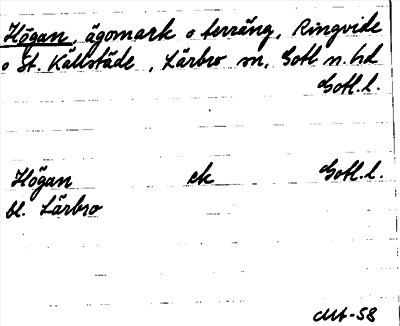 Högan, ägomark o terräng, Ringvide
o St. Källstäde, Lärbro sn, Gotl. n. hd
Gotl. l.
Högan ek Gotl. l.
bl. Lärbro
-58